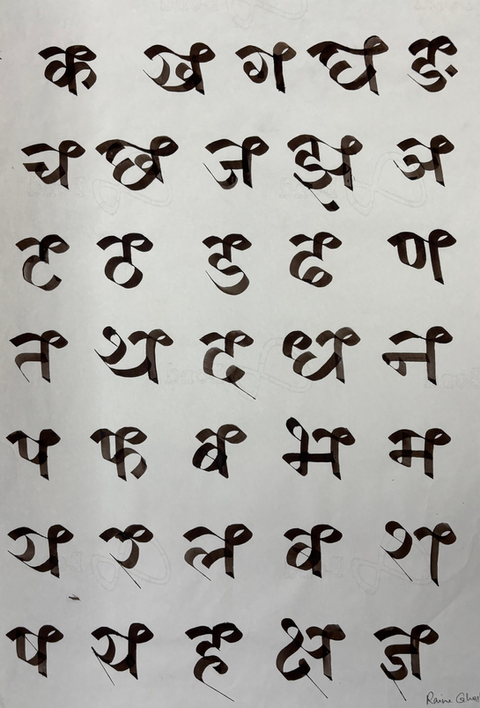 क ख ग घ ङ
च छ ज झ ञ
ट ठ ड ढ ण
त थ द ध न
प फ ब भ म
य र ल व श
ष स ह क्ष ज्ञ